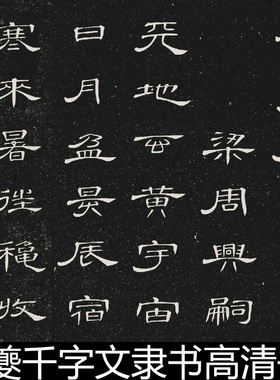 梁周興嗣
天地玄黃宇宙
日月盈昃辰宿
寒來暑徃穐收
夔千字文隶书高清